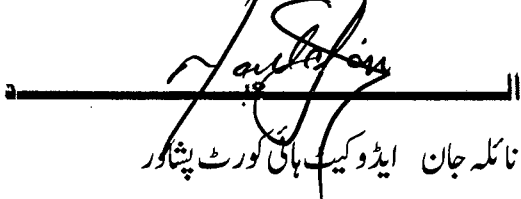 العبد
نائلہ جان ایڈوکیٹ ہائی کورٹ پشاور